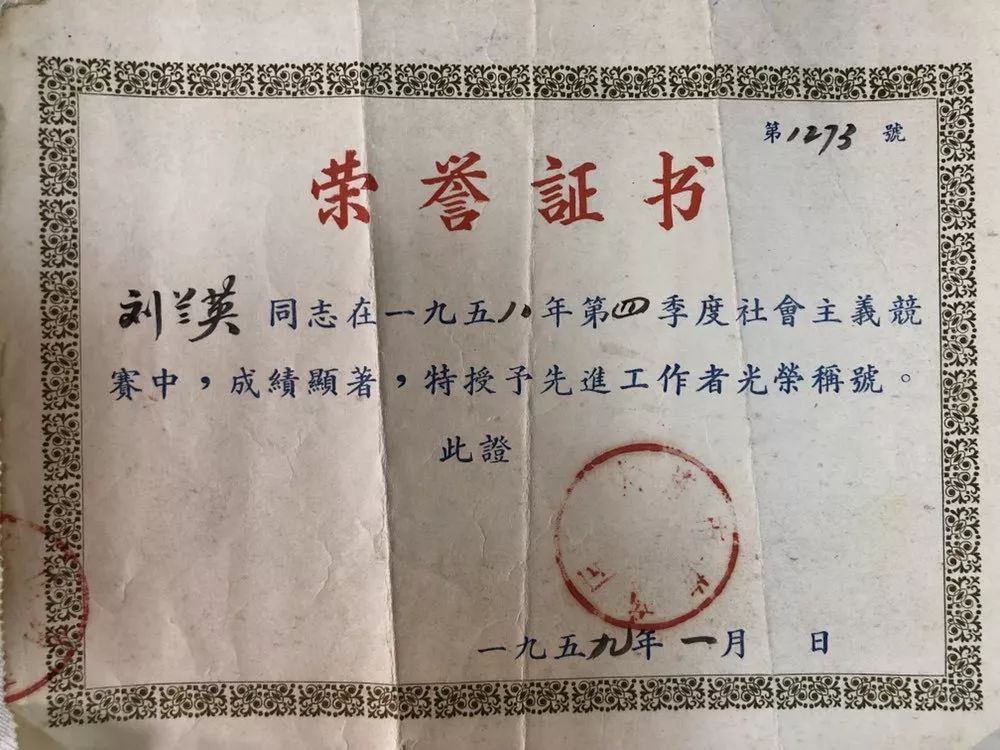 第1273 號
荣誉証书
刘兰英 同志在一九五八年第四季度社會主義競
賽中，成績顯著，特授予先進工作者光榮稱號。
此證
一九五九年 一月 日